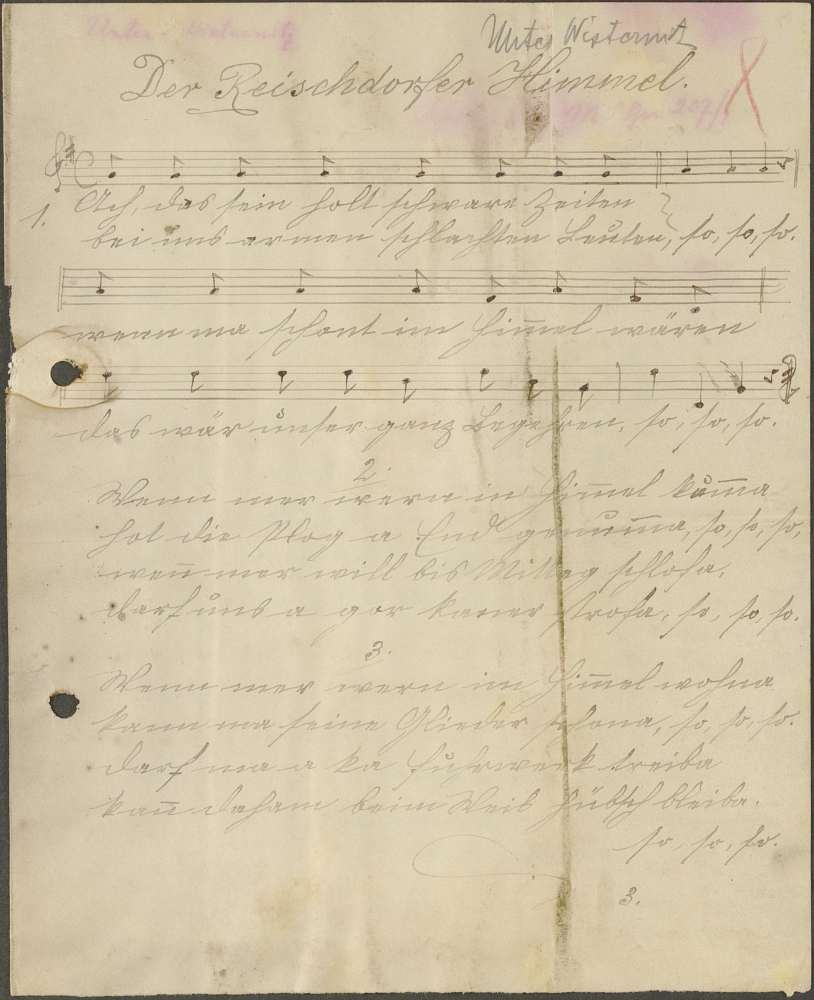 Unter-Wisternitz
Unter Wisternitz
Der Reischdorfer Himmel.
1. Ach, das sein holt schware Zeiten
bei uns armen schlachten Leuten, so, so, so.
wenn ma schont im Him̅el wären
das wär unser ganz Begehren, so, so, so.
2.
Wenn mer wern in Him̅el kum̅a
hot die Plog a End genum̅a, so, so, so,
wen̅ mer will bis Mittag schlofa,
darf uns a gor kaner strofa, so, so, so.
3.
Wenn mer wern im Him̅el wohna
kann ma seine Glieder schona, so, so, so.
darf ma a ka Fuhrwerk treiba
kan̅ daham beim Weib hübsch bleiba.
so, so, so.
3.